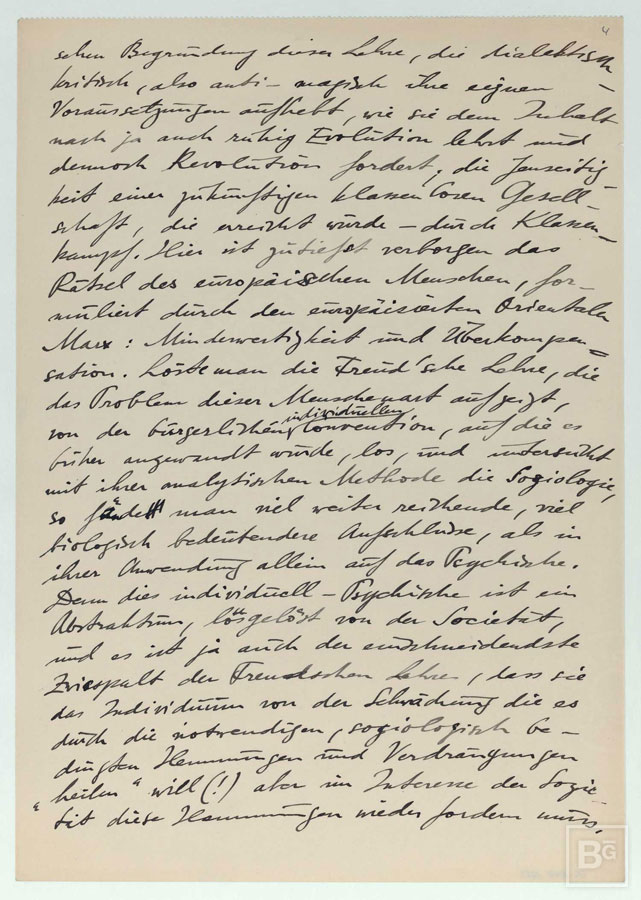 4
schen Begründung dieser Lehre, die dialektisch
kritisch, also anti-magisch ihre eignen
Voraussetzungen aufhebt, wie sie dem Inhalt
nach ja auch ruhig Evolution lehrt und
dennoch Revolution fordert, die Jenseitig-
keit einer zukünftigen klassenlosen Gesell-
schaft, die erreicht würde – durch Klassen-
kampf. Hier ist zutiefst verborgen das
Rätsel des europäischen Menschen, for-
muliert durch den europäisierten Orientalen
Marx: Minderwertigkeit und Überkompen=
sation. Löste man die Freud'sche Lehre, die
das Problem dieser Menschenart aufzeigt,
individuellen
von der bürgerlichen Convention, auf die es
bisher angewandt wurde, los, und untersucht
mit ihrer analytischen Methode die Soziologie,
so fände man viel weiter reichende, viel
biologisch bedeutendere Aufschlüsse, als in
ihrer Anwendung allein auf das Psychische.
Denn dies individuell-Psychische ist ein
Abstraktum, losgelöst von der Societät,
und es ist ja auch der einschneidendste
Zwiespalt der Freudschen Lehre, dass sie
das Individuum von der Schwächung die es
durch die notwendigen, soziologisch be-
dingten Hemmungen und Verdrängungen
"heilen" will (!) aber im Interesse der Sozie
tät diese Hemmungen wieder fordern muss.
BG